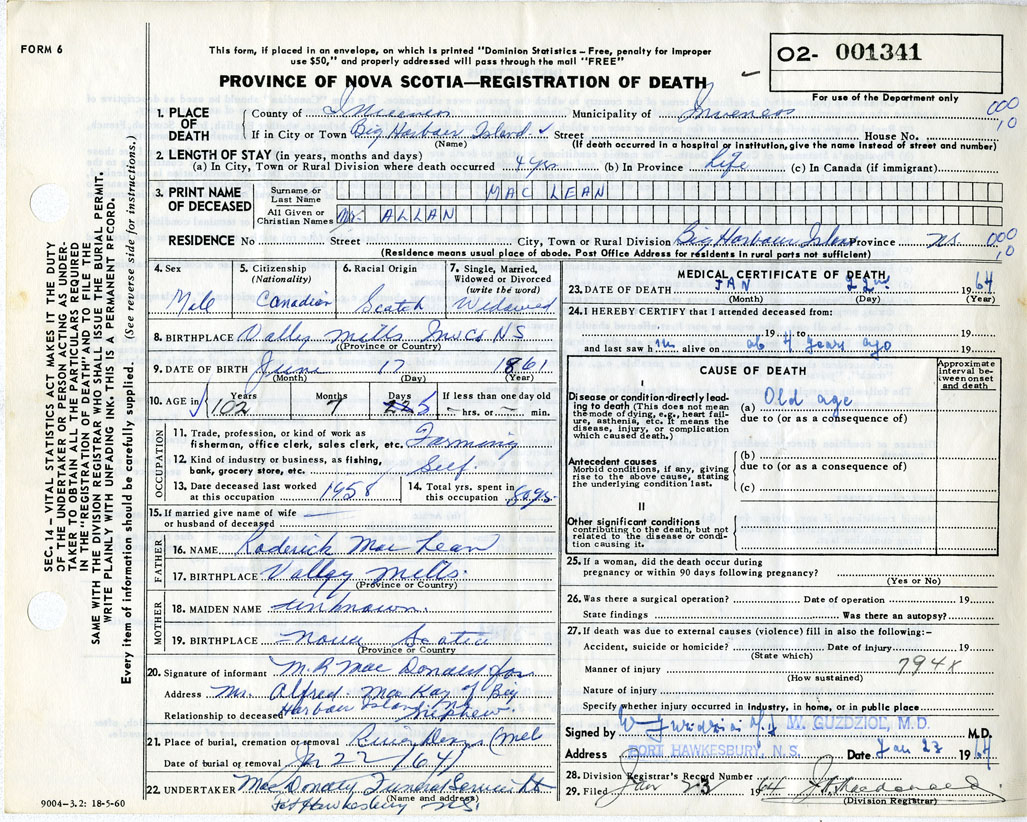 FORM 6
This form, if placed in an envelope, on which is printed "Dominion Statistics – Free, penalty for improper
use $50," and properly addressed will pass through the mail "FREE"
PROVINCE OF NOVA SCOTIA—REGISTRATION OF DEATH
O2- 001341
For use of the Department only
1. PLACE OF DEATH
County of Inverness Municipality of Inverness 000
If in City or Town Big Harbour Island Street House No. 10
(Name) (If death occurred in a hospital or institution, give the name instead of street and number)
2. LENGTH OF STAY (in years, months and days)
(a) In City, Town or Rural Division where death occurred 4 yrs (b) In Province Life (c) In Canada (if immigrant)
3. PRINT NAME OF DECEASED
Surname or Last Name MAC LEAN
All Given or Christian Names Mr. ALLAN
RESIDENCE No Street City, Town or Rural Division Big Harbour Island Province N.S. 000
(Residence means usual place of abode. Post Office Address for residents in rural parts not sufficient) 10
4. Sex Male
5. Citizenship (Nationality) Canadian
6. Racial Origin Scotch
7. Single, Married, Widowed or Divorced (write the word) Widowed
8. BIRTHPLACE Valley Mills Invs NS
(Province or Country)
9. DATE OF BIRTH June 17 1861
(Month) (Day) (Year)
10. AGE in Years 102 Months 7 Days 5 If less than one day hrs. or min.
OCCUPATION
11. Trade, profession, or kind of work as
fisherman, office clerk, sales clerk, etc. Farming
12. Kind of industry or business, as fishing,
bank, grocery store, etc. Self
13. Date deceased last worked
at this occupation 1958
14. Total yrs. spent in
this occupation 80 yrs.
15. If married give name of wife
or husband of deceased
FATHER
16. NAME Roderick Mac Lean
17. BIRTHPLACE Valley Mills.
(Province or Country)
MOTHER
18. MAIDEN NAME unknown.
19. BIRTHPLACE Nova Scotia
(Province or Country
20. Signature of informant M. R Mac Donald for
Address Mr. Alfred Mac Kay of Big
Harbour Island
Relationship to deceased Nephew.
21. Place of burial, cremation or removal River Denys
Date of burial or removal 22/64
22. UNDERTAKER Mac Donald Funeral Service
(Name and address)
Pt Hawkesbury N.S.
9004–3.2: 18-5-60
MEDICAL CERTIFICATE OF DEATH
23. DATE OF DEATH JAN 22nd 1964
(Month) (Day) (Year)
24. I HEREBY CERTIFY that I attended deceased from:
19 to 19
and last saw him alive on ab 4 years ago 19
CAUSE OF DEATH
Approximate interval between onset and death
I
Disease or condition-directly leading to death (This does not mean the mode of dying, e.g., heart failure, asthenia, etc. It means the disease, injury, or complication which caused death.)
(a) Old age
due to (or as a consequence of)
Antecedent causes
Morbid conditions, if any, giving rise to the above cause, stating the underlying condition last.
(b)
due to (or as a consequence of)
(c)
II
Other significant conditions
contributing to the death, but not related to the disease or condition causing it.
25. If a woman, did the death occur during
pregnancy or within 90 days following pregnancy?
(Yes or No)
26. Was there a surgical operation? Date of operation 19
State findings Was there an autopsy?
27. If death was due to external causes (violence) fill in also the following:–
Accident, suicide or homicide? Date of injury 19
(State which)
Manner of injury 794X
(How sustained)
Nature of injury
Specify whether injury occurred in industry, in home, or in public place
Signed by W Guzdziol M.D W. GUZDZIOL, M.D. M.D.
Address PORT HAWKESBURY, N.S. Date Jan 23 1964
28. Division Registrar's Record Number
29. Filed Jan 23 1964
(Division Registrar)
SEC. 14 – VITAL STATISTICS ACT MAKES IT THE DUTY
OF THE UNDERTAKER OR PERSON ACTING AS UNDER-
TAKER TO OBTAIN ALL THE PARTICULARS REQUIRED
IN THE "REGISTRATION OF DEATH" AND TO FILE THE
SAME WITH THE DIVISION REGISTRAR WHO SHALL ISSUE THE BURIAL PERMIT.
WRITE PLAINLY WITH UNFADING INK. THIS IS A PERMANENT RECORD.
Every item of information should be carefully supplied. (See reverse side for instructions.)